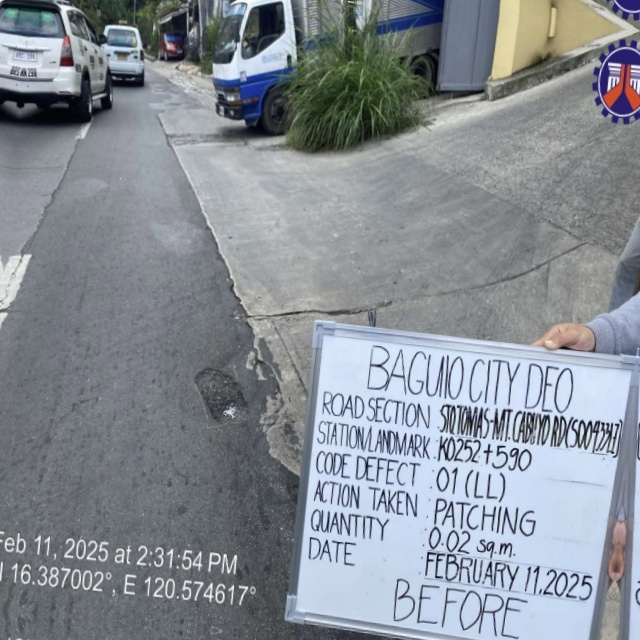 BAGUIO CITY DEO
ROAD SECTION STO TOMAS-MT. CABUYO RD(S00422LZ)
STATION/LANDMARK : K0252+590
CODE DEFECT : 01 (LL)
ACTION TAKEN : PATCHING
QUANTITY : 0.02 sq.m.
DATE : FEBRUARY 11, 2025
BEFORE
Feb 11, 2025 at 2:31:54 PM
N 16.387002°, E 120.574617°